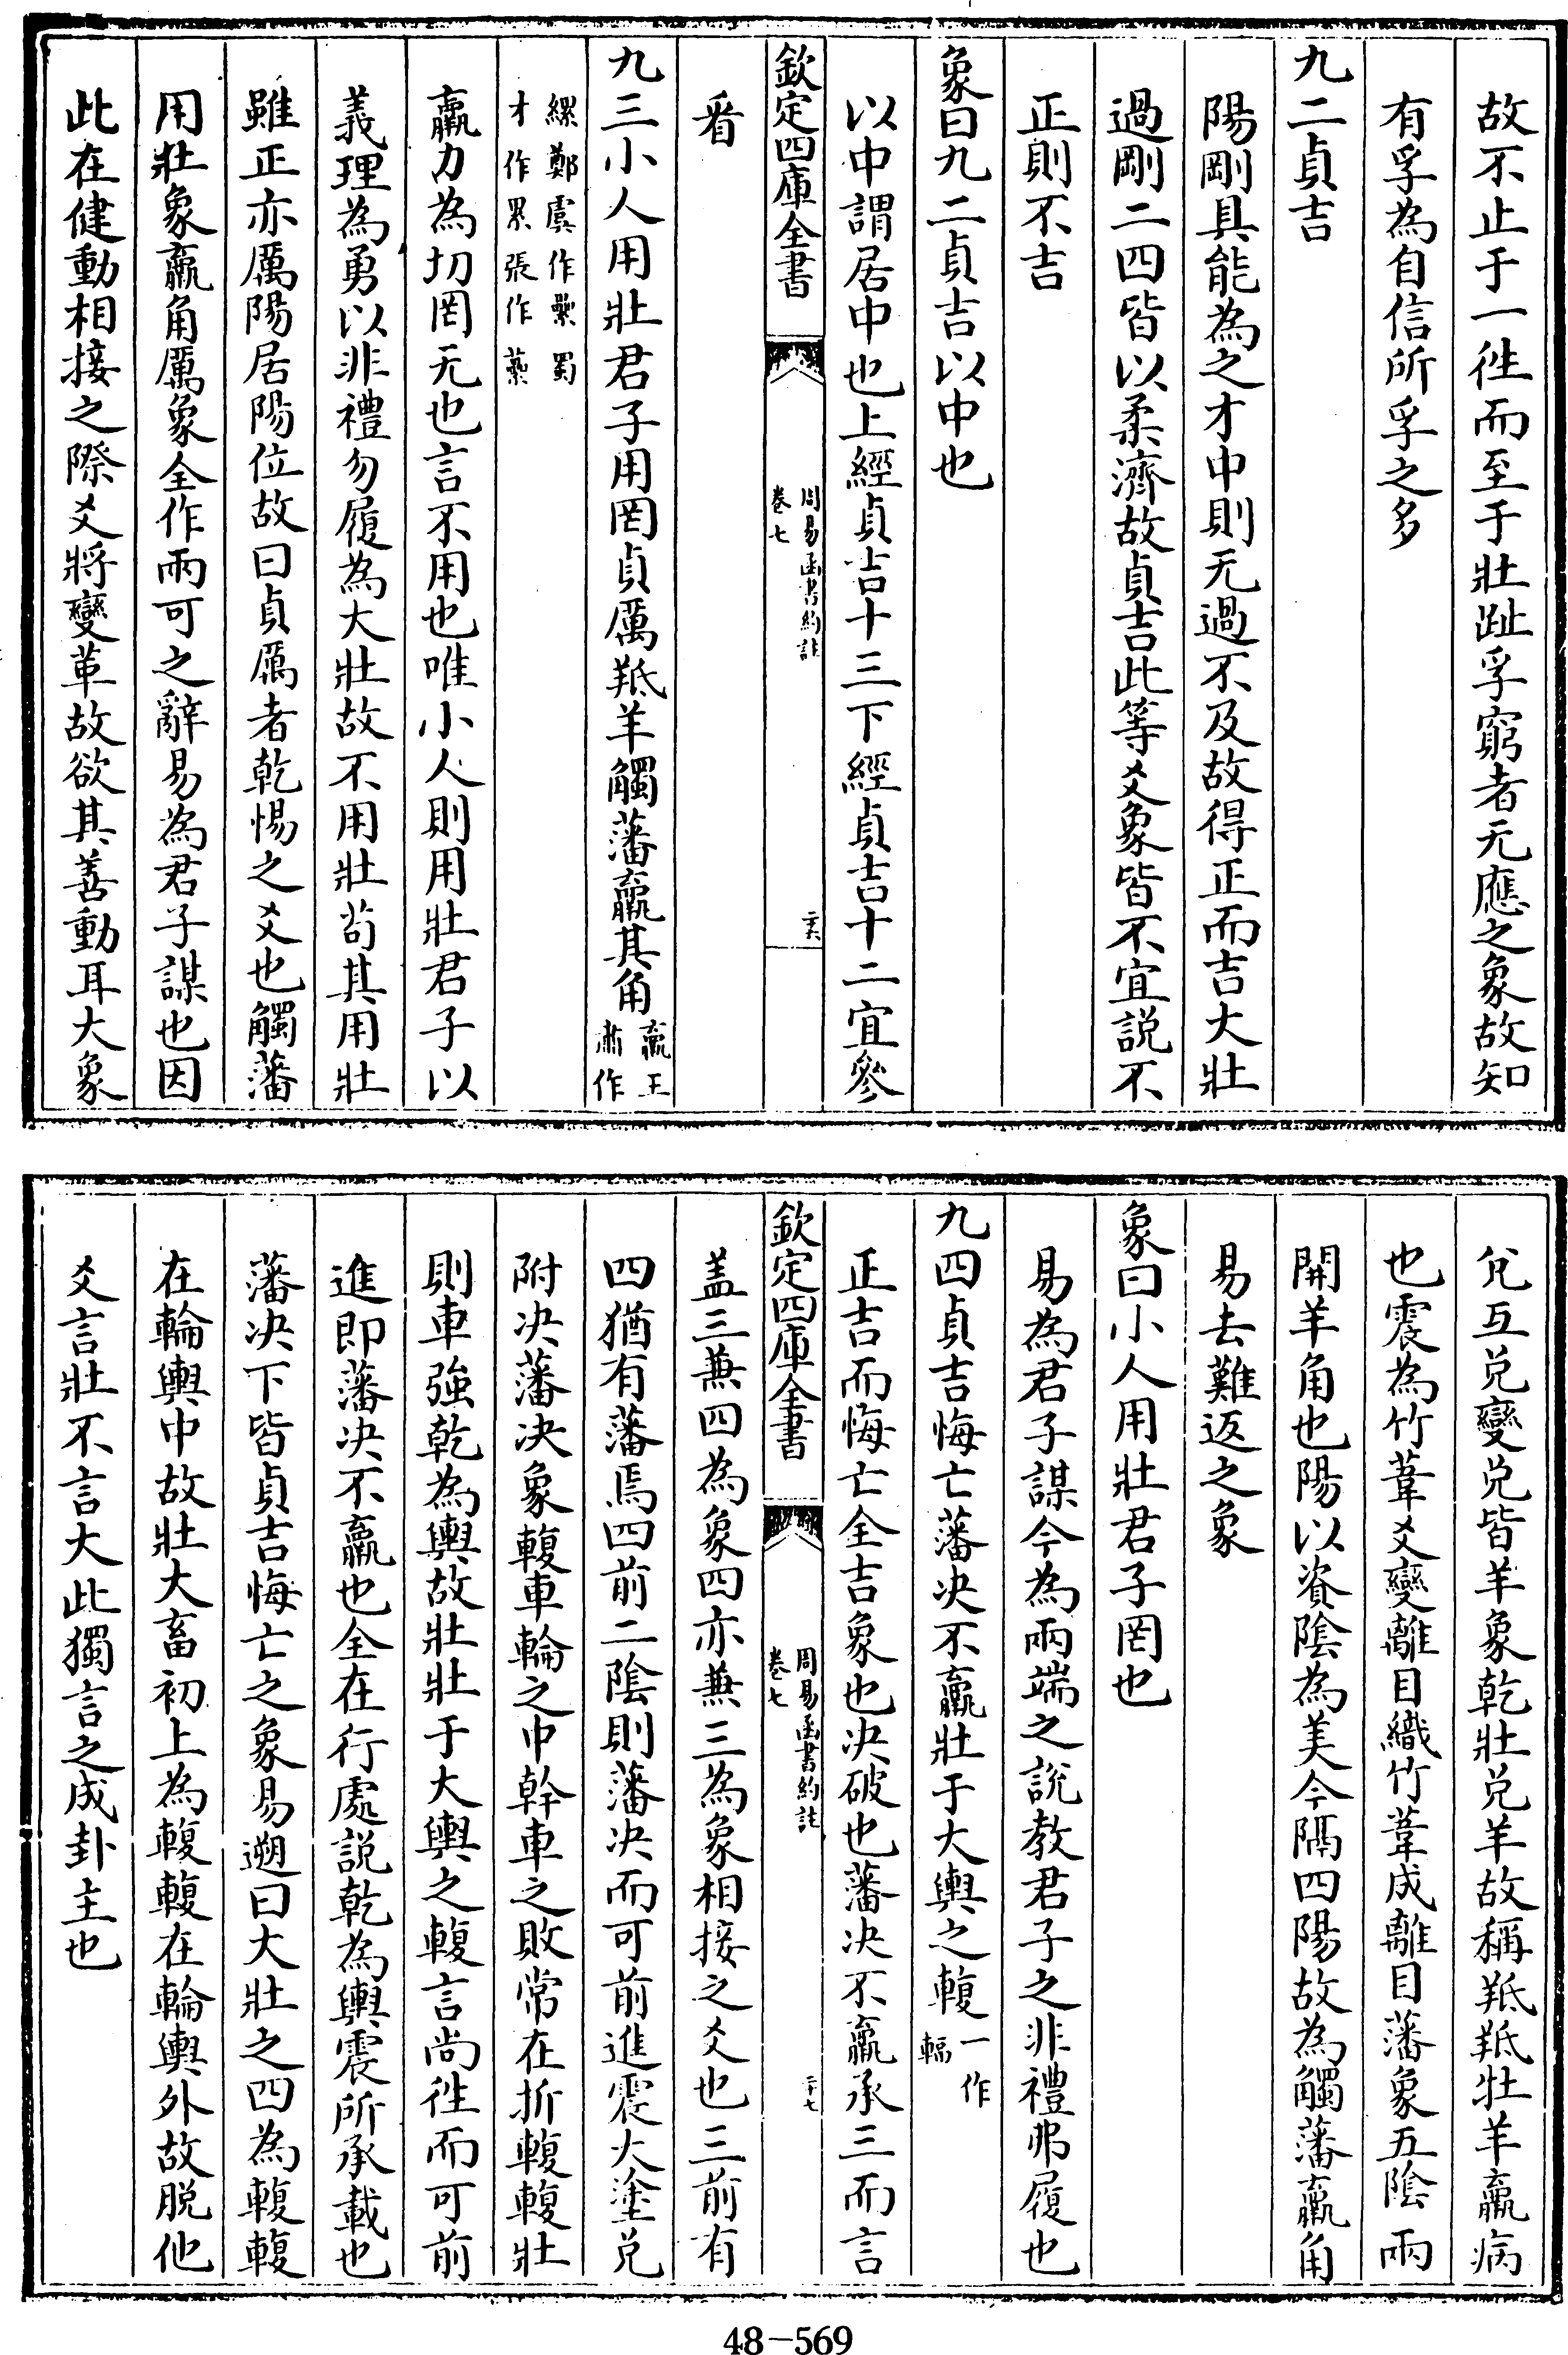 故不止于一徃而至于壯趾孚窮者无應之象故知
有孚為自信所孚之多
九二貞吉
陽剛具能為之才中則无過不及故得正而吉大壯
過剛二四皆以柔濟故貞吉此等爻象皆不宜説不
正則不吉
象曰九二貞吉以中也
以中謂居中也上經貞吉十三下經貞吉十二宜參
欽定四庫全書
周易函書約註
卷七
二六
看
九三小人用壯君子用罔貞厲羝羊觸藩羸其角
羸王
肅作
縲鄭虞作纍蜀
才作累張作虆
羸力為切罔无也言不用也唯小人則用壯君子以
義理為勇以非禮勿履為大壯故不用壯茍其用壯
雖正亦厲陽居陽位故曰貞厲者乾惕之爻也觸藩
用壯象羸角厲象全作兩可之辭易為君子謀也因
此在健動相接之際爻將變革故欲其善動耳大象
兌互兌變兌皆羊象乾壯兌羊故稱羝羝牡羊羸病
也震為竹葦爻變離目織竹葦成離目藩象五陰兩
開羊角也陽以資陰為美今隔四陽故為觸藩羸角
易去難返之象
象曰小人用壯君子罔也
易為君子謀今為兩端之說教君子之非禮弗履也
九四貞吉悔亡藩决不羸壯于大輿之輹
一作
輻
正吉而悔亡全吉象也决破也藩决不羸承三而言
欽定四庫全書
周易函書約註
卷七
二十七
盖三兼四為象四亦兼三為象相接之爻也三前有
四猶有藩焉四前二陰則藩决而可前進震大塗兌
附决藩决象輹車輪之中幹車之敗常在折輹輹壯
則車強乾為輿故壯壯于大輿之輹言尚徃而可前
進即藩决不羸也全在行處説乾為輿震所承載也
藩决下皆貞吉悔亡之象易遡曰大壯之四為輹輹
在輪輿中故壯大畜初上為輹輹在輪輿外故脱他
爻言壯不言大此獨言之成卦主也
48-569